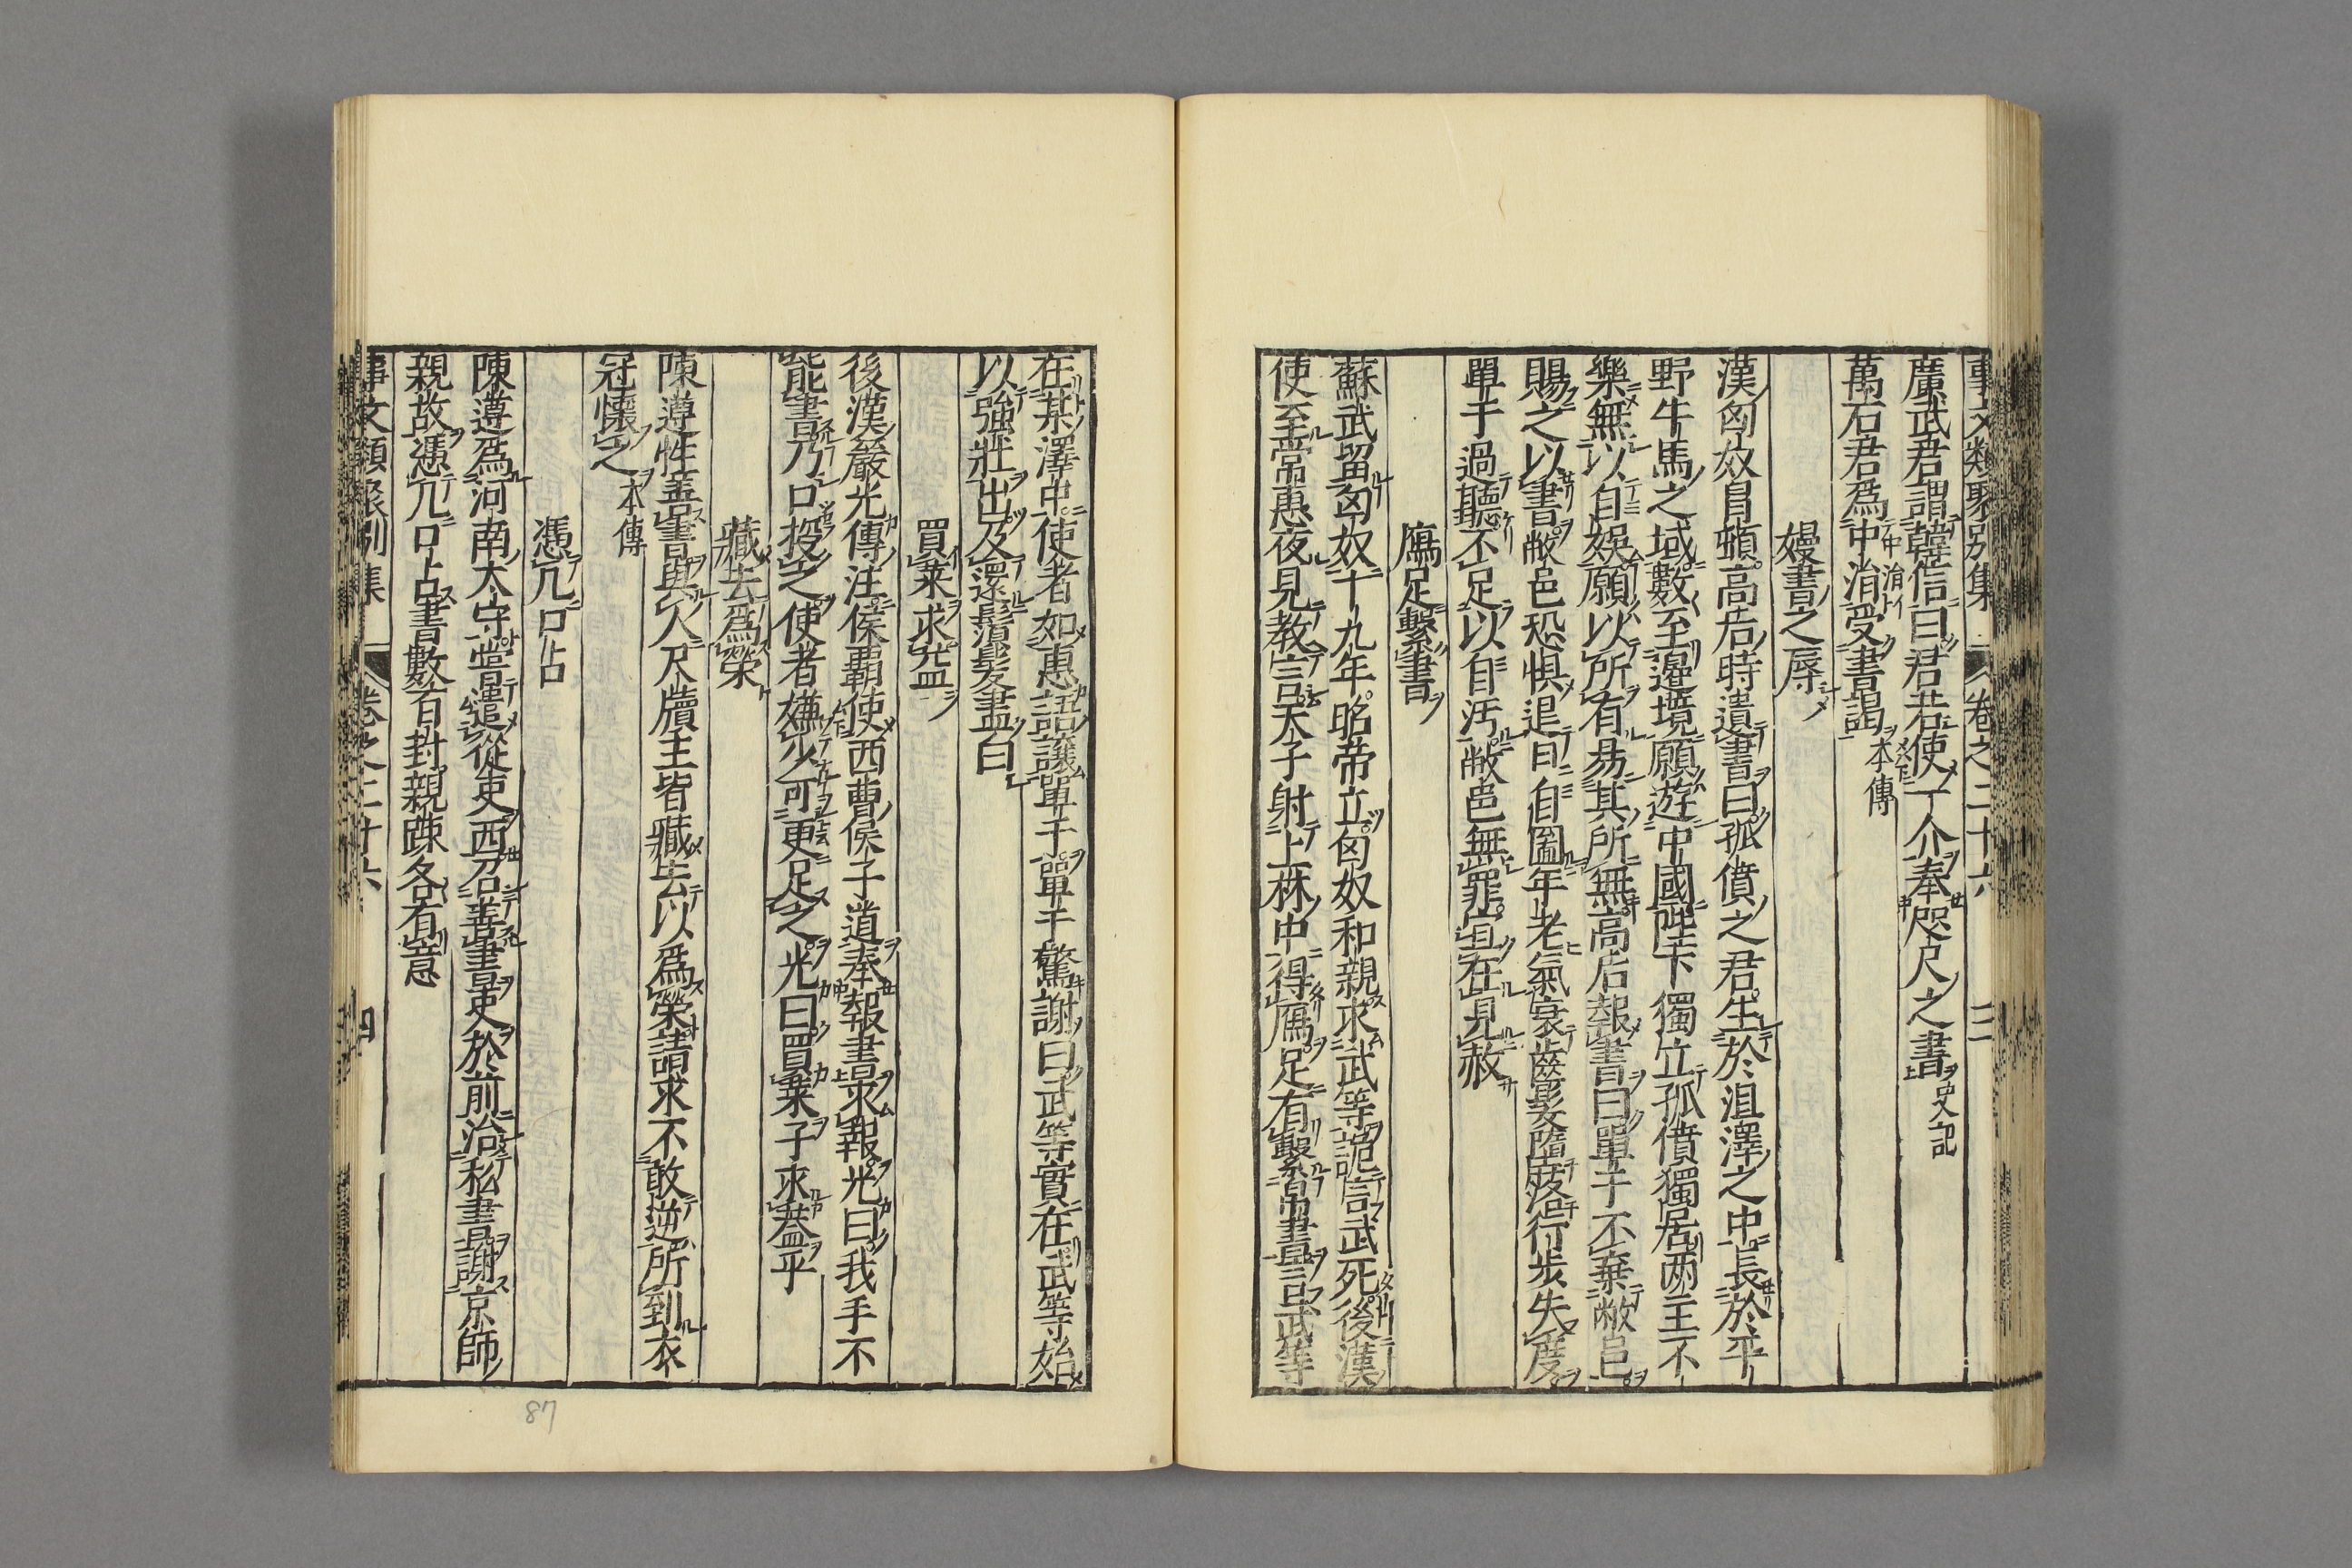 事文類聚別集 卷之二十六 三
廣武君謂韓信曰君若使一介奉咫尺之書史記
萬石君爲中涓受書謁本傳
嫚書之辱
漢匈奴冒頓高后時遺書曰孤僨之君生於沮澤之中長於平
野牛馬之域數至邊境願遊中國陛下獨立孤僨獨居两主不
樂無以自娯願以所有易其所無高后報書曰單于不棄敝邑
賜之以書敝邑恐惧退日自圖年老氣衰齒髮墮落行步失度
單于過聽不足以自汚敝邑無罪宜在見赦
鴈足繫書
蘇武留匈奴十九年昭帝立匈奴和親求武等詭言武死後漢
使至常惠夜見教言天子射上林中得鴈足有繫帛書言武等
在某澤中使者如惠語讓單于單于驚謝曰武等實在武等始
以強壯出及還鬚髮盡白
買菜求益
後漢嚴光傳注侯覇使西曹侯子道奉報書求報光曰我手不
能書乃口授之使者嫌少可更足之光曰買菜子求益乎
藏去爲榮
陳遵性善書與人尺牘主皆藏去以爲榮請求不敢逆所到衣
冠懷之本傳
憑几口占
陳遵爲河南太守嘗遣從吏西召善書吏於前治私書謝京師
親故憑几口占書數百封親疎各有意
事文類聚別集 卷之二十六 四
87